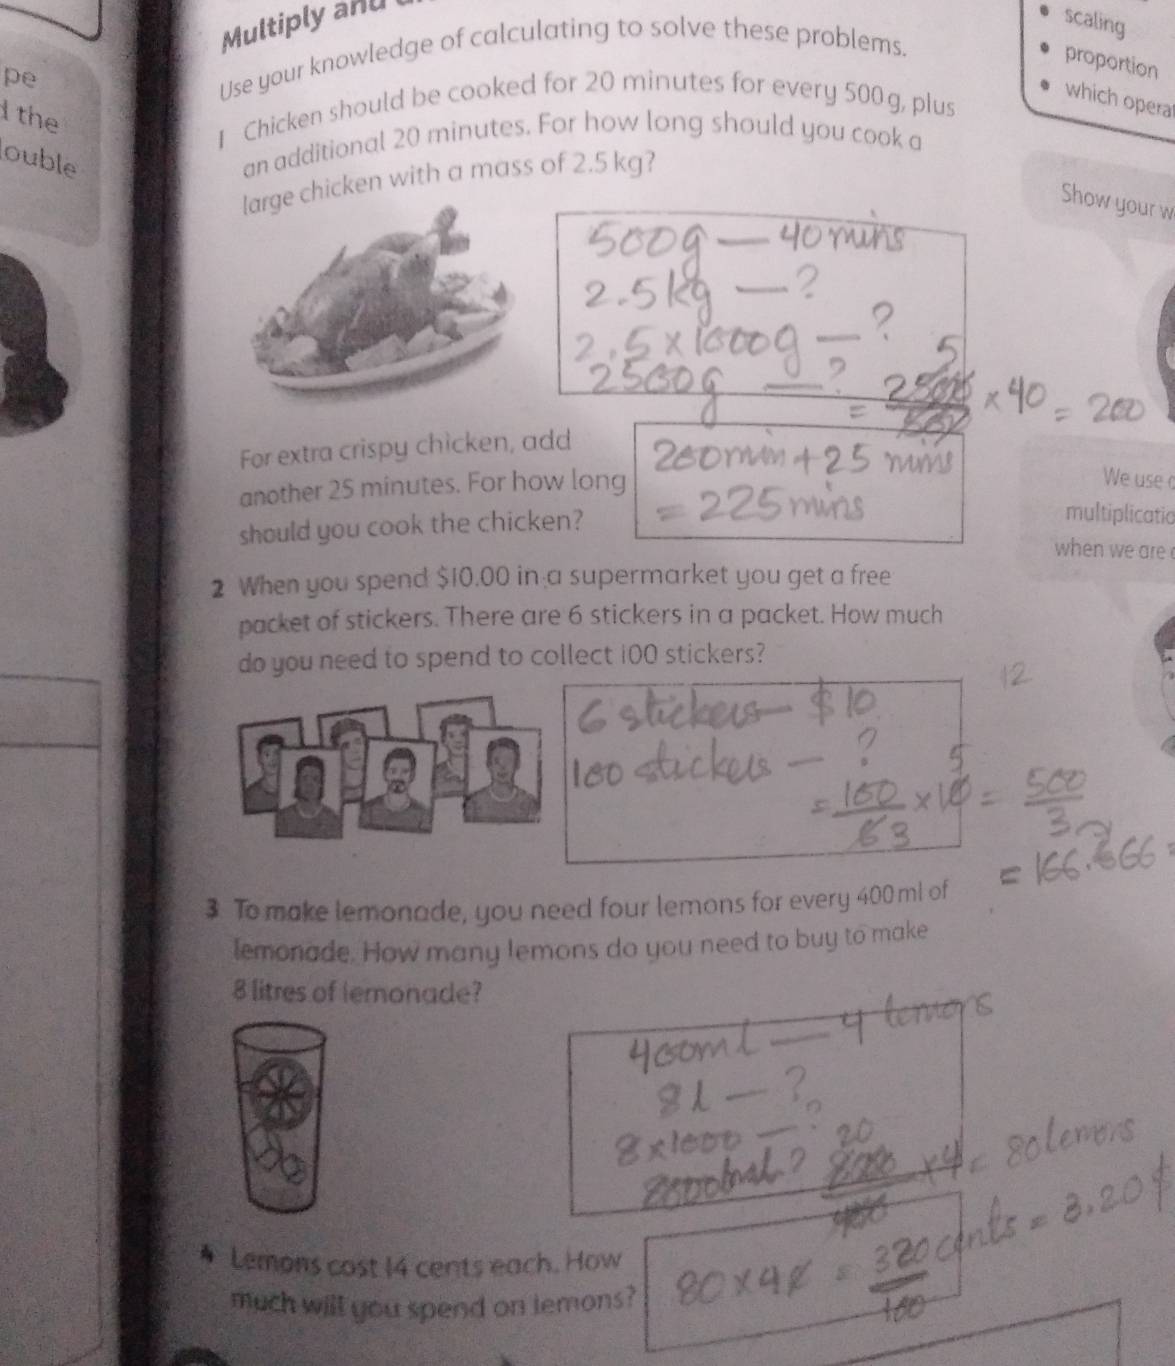 Multiply and
Use your knowledge of calculating to solve these problems.
1 Chicken should be cooked for 20 minutes for every 500g, plus
an additional 20 minutes. For how long should you cook a
large chicken with a mass of 2.5 kg?
500g — 40 mins
2.5 kg — ?
2.5 × 1000g — ?
2500g — ? = 2500/500 × 40 = 200
5
For extra crispy chicken, add
another 25 minutes. For how long
should you cook the chicken?
200min + 25 mins
= 225 mins
2 When you spend $10.00 in a supermarket you get a free
packet of stickers. There are 6 stickers in a packet. How much
do you need to spend to collect 100 stickers?
12
6 stickers — $10
100 stickers — ?
= 100/6 × 10 = 500/3
3
5
= 166.666
3 To make lemonade, you need four lemons for every 400ml of
lemonade. How many lemons do you need to buy to make
8 litres of lemonade?
400ml — 4 lemons
8l — ?
8×1000 — ?
20
8000ml ? 8000/400 × 4 = 80 lemons
4 Lemons cost 14 cents each. How
much will you spend on lemons?
80 × 4 = 320 cents = 3.20
100
pe
d the
double
scaling
proportion
which opera
Show your w
We use
multiplicatio
when we are